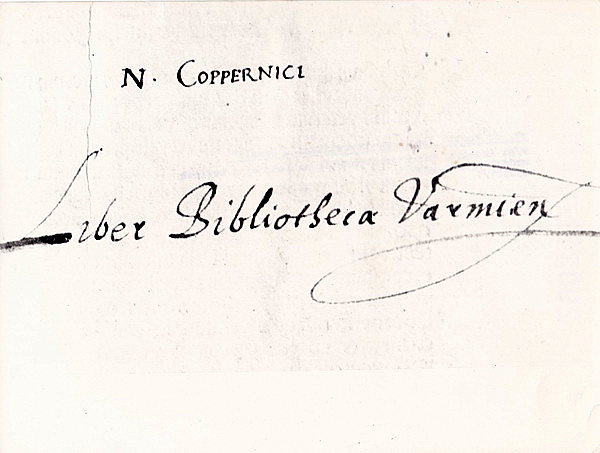 N. COPPERNICI
Liber Bibliothecæ Varmien